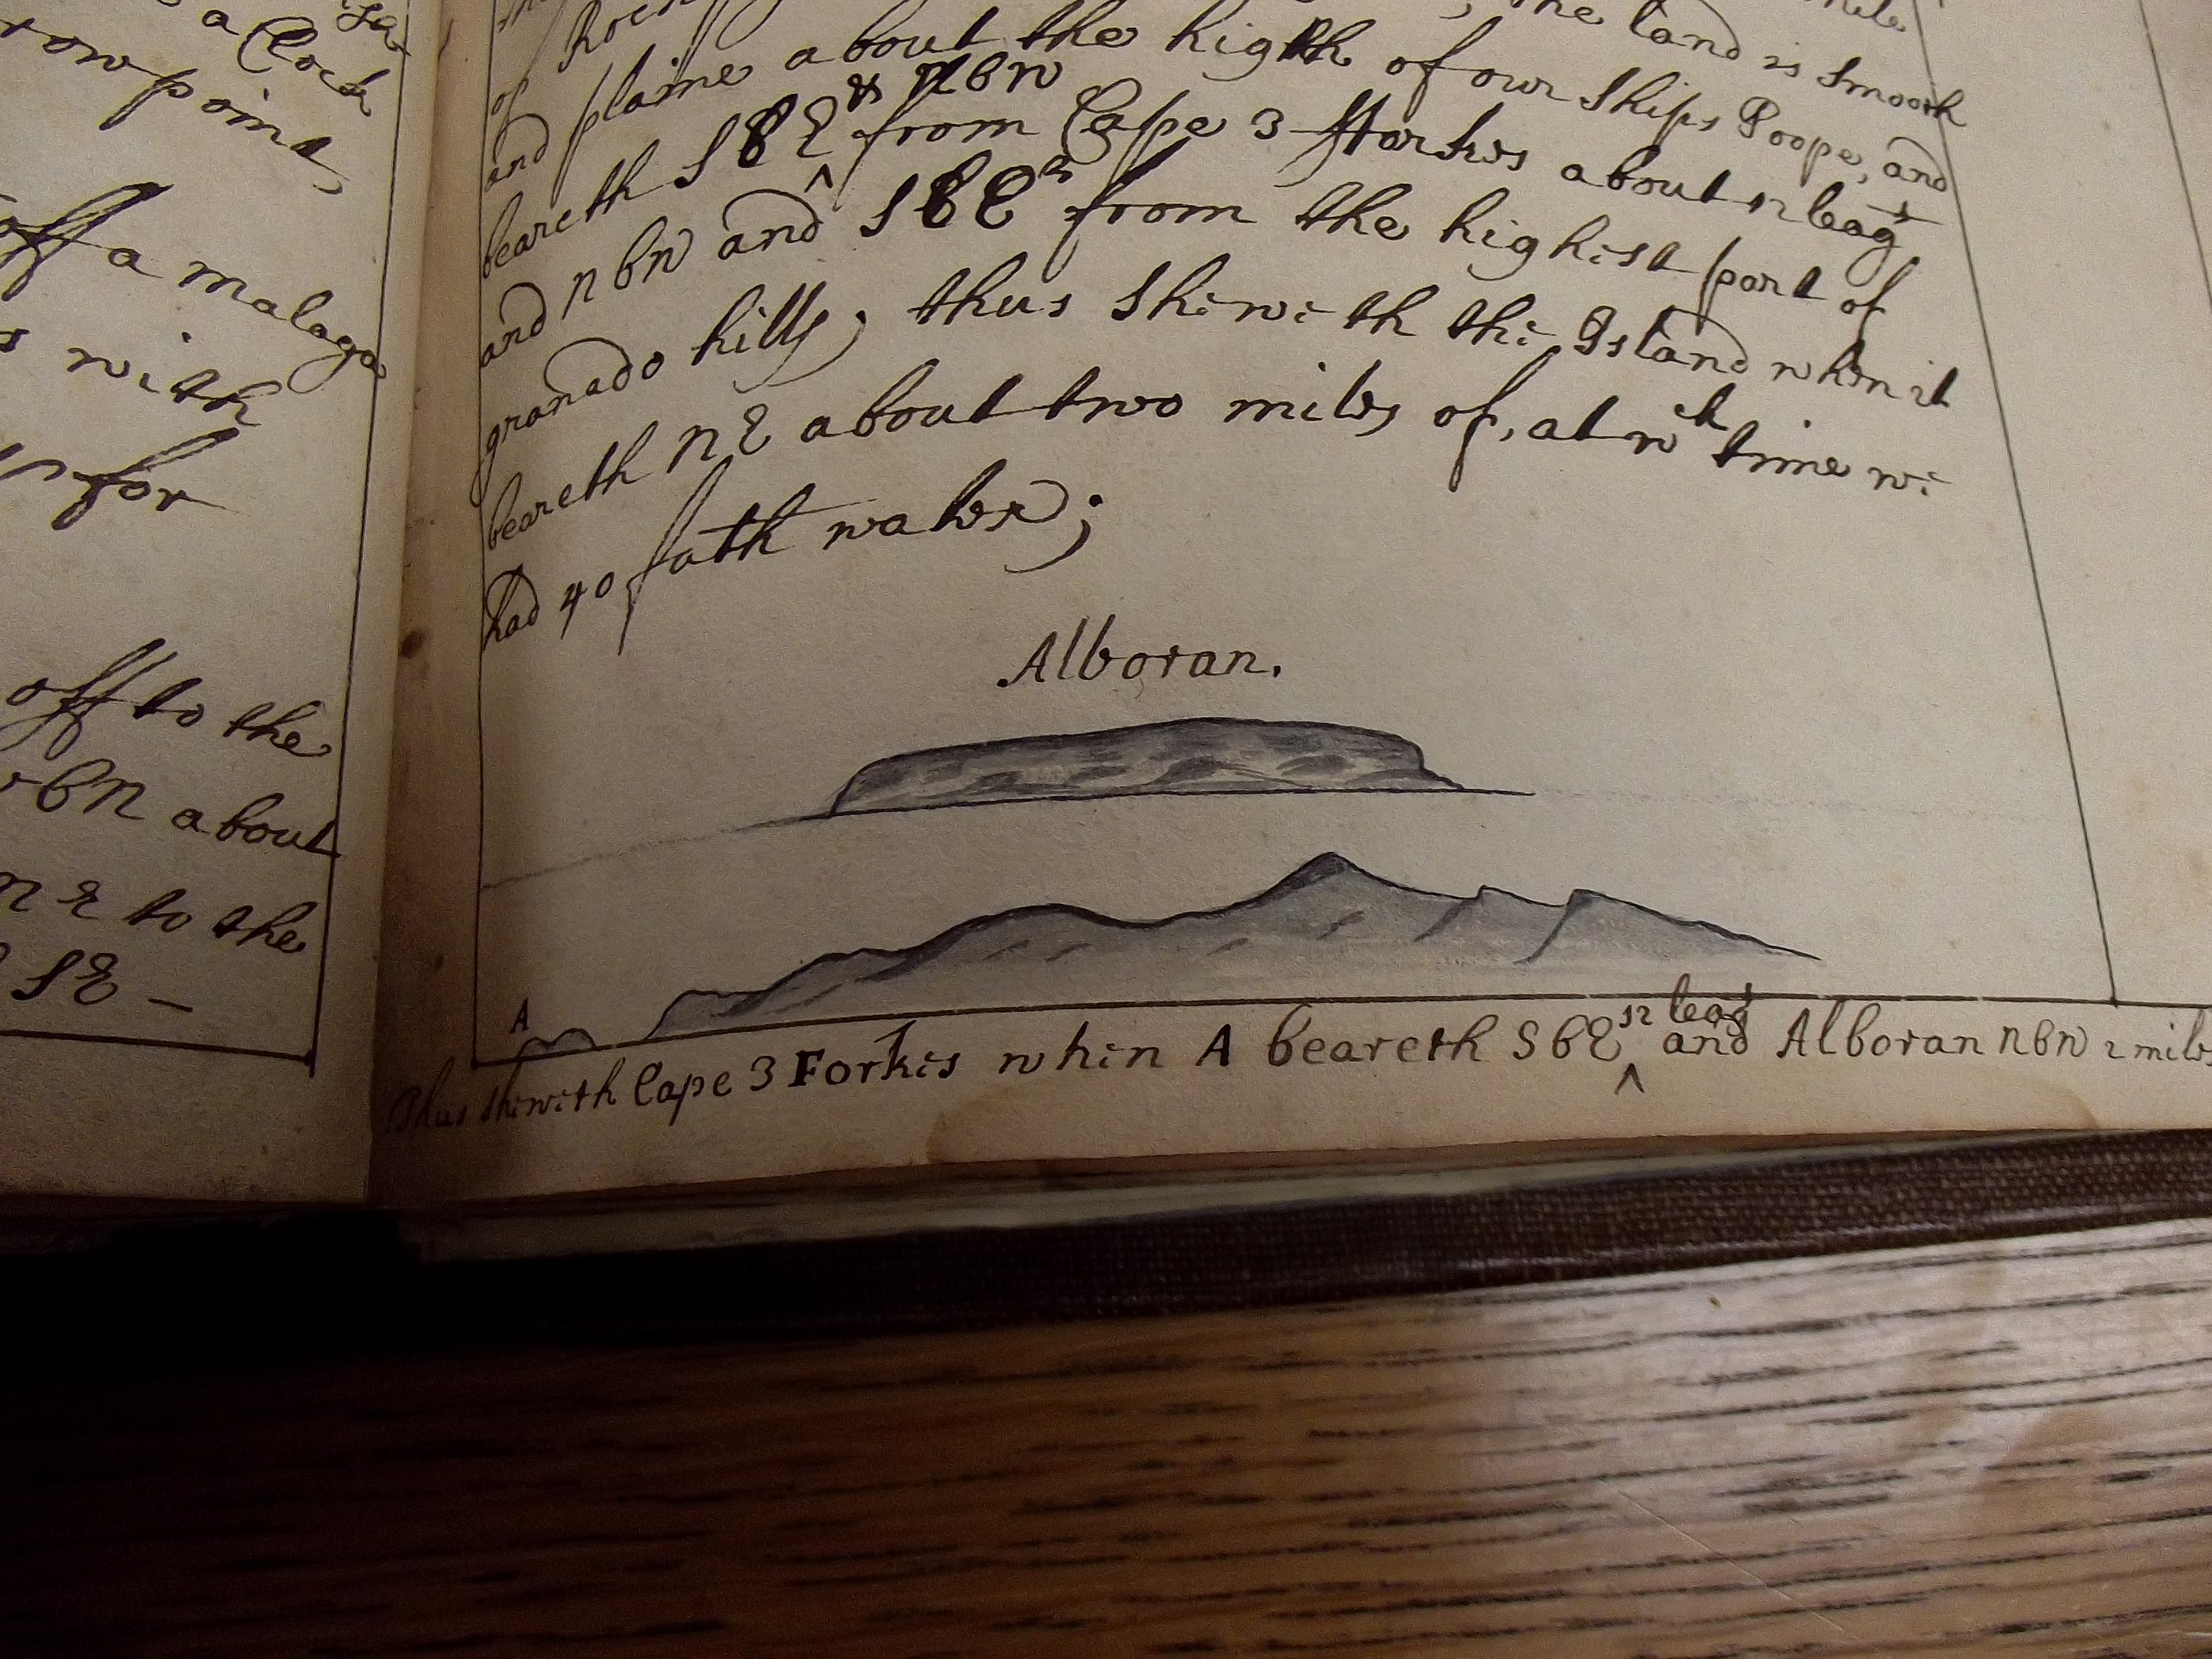 a Clock
row point,
off a malaga
with
for
off to the
bN about
n E to the
SE —
the land is smooth
of Rock
and plaine about the highth of our Ships Poope, and
beareth SbE & NbW from Cape 3 fforkes about 12 leags
and nbW and SbE from the highest part of
granado hills; thus shewith the Island when it
beareth NE about two miles of, at wch time we
had 40 fath water;
Alboran.
A
Thus shewith Cape 3 Forkes when A beareth SbE 12 leags and Alboran nbW 2 miles